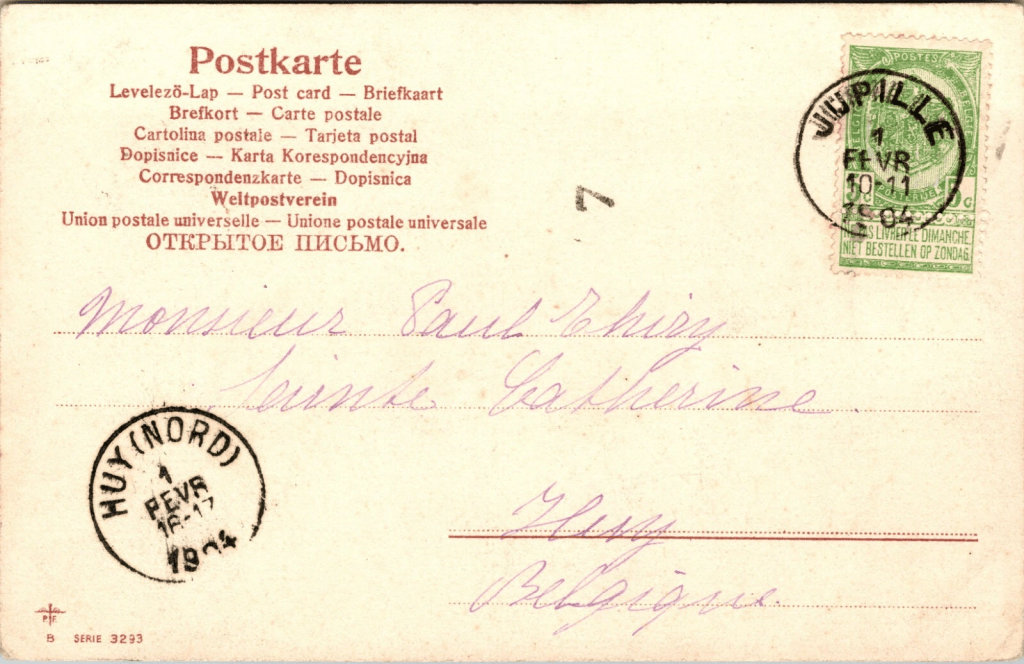 Postkarte
Levelező-Lap — Post card — Briefkaart
Brefkort — Carte postale
Cartolina postale — Tarjeta postal
Dopisnice — Karta Korespondencyjna
Correspondenzkarte — Dopisnica
Weltpostverein
Union postale universelle — Unione postale universale
ОТКРЫТОЕ ПИСЬМО.
7
POSTES
5 C
NIET BESTELLEN OP ZONDAG
JUPILLE
1
FEVR
10-11
1904
Monsieur Paul Thiry
Sainte Catherine
Huy
Belgique
HUY (NORD)
1
FEVR
16-17
1904
P F
B SERIE 3293